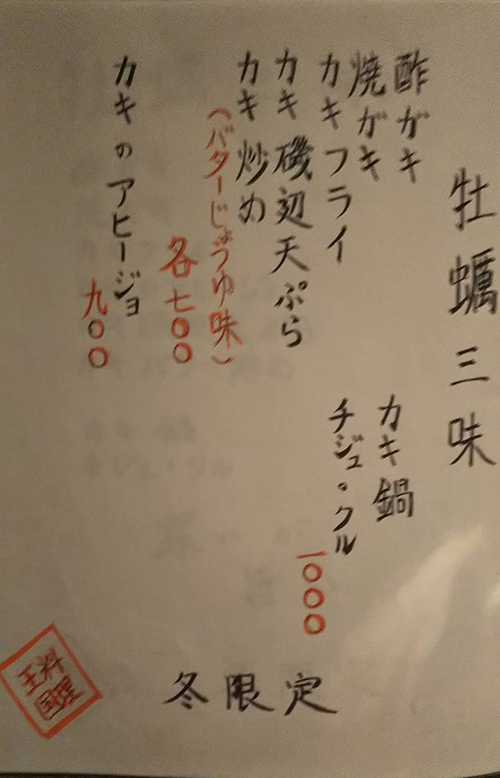 牡蠣三味
酢ガキ
焼ガキ
カキフライ
カキ磯辺天ぷら
カキ炒め
(バターじょうゆ味)
各七〇〇
カキのアヒージョ
九〇〇
カキ鍋
チジュ・クル
一〇〇〇
冬限定
料理
王国